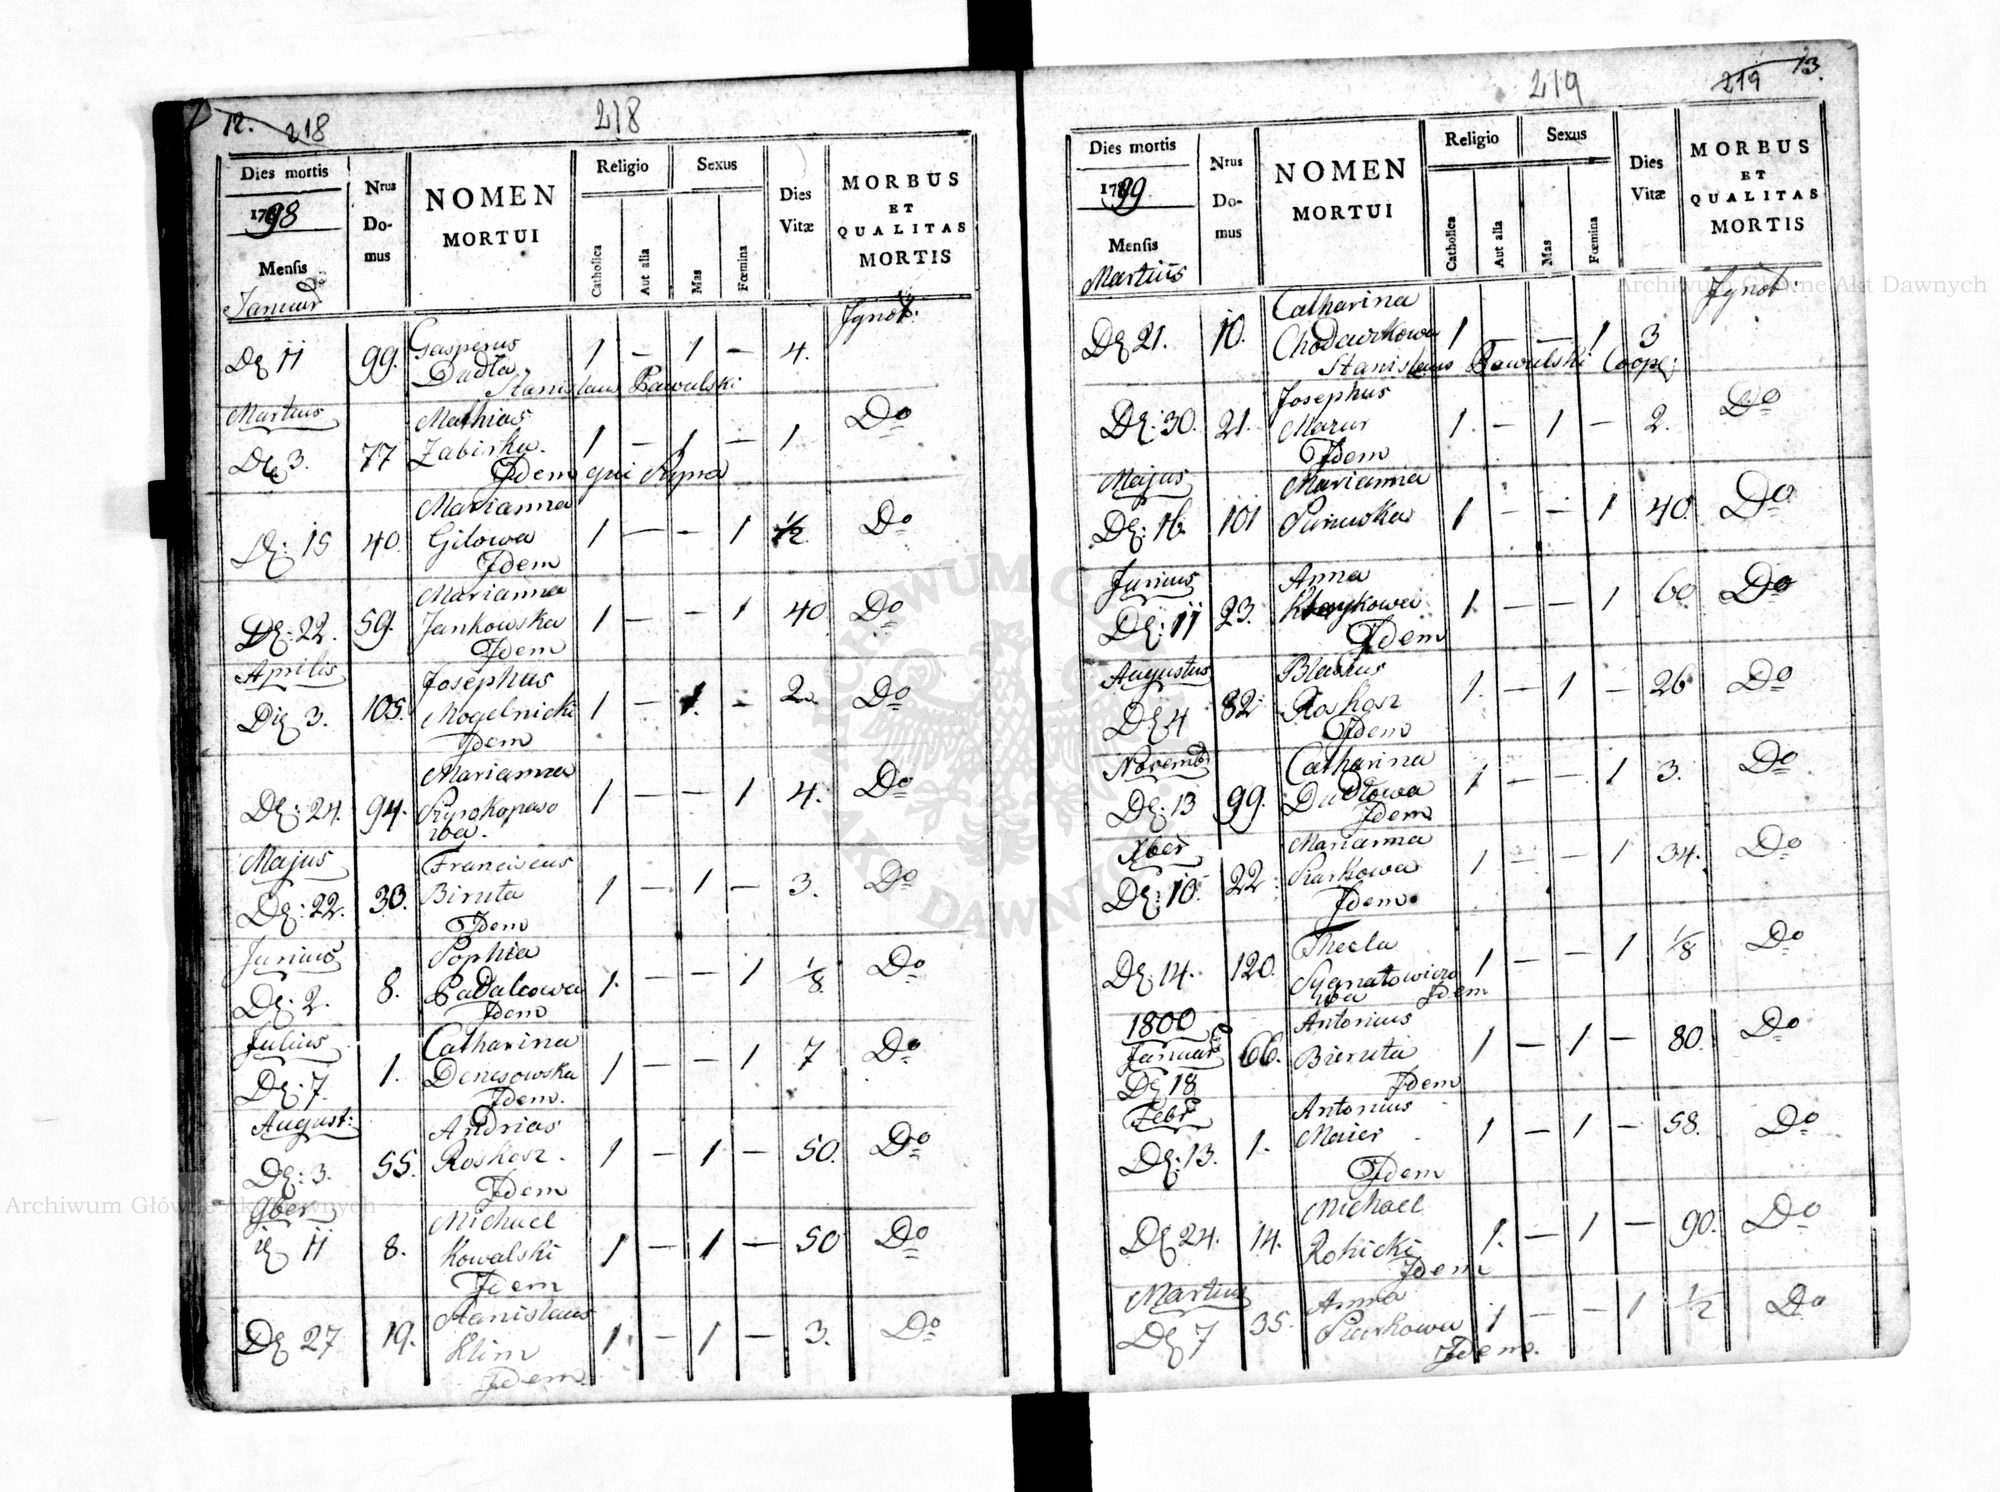 12. 218
218
Dies mortis
1798
Mensis
Januar
Nrus
Do-
mus
NOMEN
MORTUI
Religio
Catholica
Aut alia
Sexus
Mas
Fœmina
Dies
Vitæ
MORBUS
ET
QUALITAS
MORTIS
Ignot:
De 11 99. Gasperus
Dudła 1 — 1 — 4.
Stanislaus Pawulski
Martius Mathias
De 3. 77 Zabirka. 1 — 1 — 1. Do
Idem qui Supra
Marianna
De: 15 40. Gilowa 1 — — 1 1/2 Do
Idem
Marianna
De: 22. 59. Jankowska 1 — — 1 40 Do
Idem
Aprilis Josephus
Die 3. 105. Mogelnicki 1 — 1. — 2. Do
Idem
Marianna
De: 24. 94. Prokopowo 1 — — 1 4. Do
wa.
Majus Franciscus
De: 22. 30. Biruta 1 — 1 — 3. Do
Idem
Junius Sophia
De: 2. 8. Padalcowa 1. — — 1 1/8 Do
Idem
Julius Catharina
De: 7. 1. Denisowska 1 — — 1 7 Do
Idem.
August: Andrias
De: 3. 55. Roskosz. 1 — 1 — 50. Do
Idem
9ber Michael
11 8. Kowalski 1 — 1 — 50 Do
Idem
Stanislaus
De 27 19. Klim 1. — 1 — 3. Do
Idem
219
219 13.
Dies mortis
1799.
Mensis
Martius
Nrus
Do-
mus
NOMEN
MORTUI
Religio
Catholica
Aut alia
Sexus
Mas
Fœmina
Dies
Vitæ
MORBUS
ET
QUALITAS
MORTIS
Ignot:
Catharina
De 21. 10. Chodawkowa 1 — — 1 3
Stanislaus Pawulski Coope:
Josephus
De: 30. 21. Mazur 1. — 1 — 2. Do
Idem
Majus Marianna
De: 16. 101 1 — — 1 40. Do
Junius Anna
De: 11 23. 1 — — 1 60 Do
Idem
Augustus Blasius
De 4 82 Roskosz 1. — 1 — 26 Do
Idem
Novembr Catharina
De: 13 99. Dudłowa 1 — — 1 3. Do
Idem
Xber Marianna
De: 10. 22 Piarkowa 1 — — 1 34. Do
Idem
Thecla
De: 14. 120. Sygnatowiczo 1 — — 1 1/8 Do
wa Idem
1800 Antonius
Januar 66. Bieruta 1 — 1 — 80. Do
De 18 Idem
Febr Antonius
De: 13. 1. Maier 1 — 1 — 58. Do
Idem
Michael
De 24. 14. Rokicki 1. — 1 — 90. Do
Idem
Martius Anna
De 7 35. Piarkowa 1 — — 1 1/2 Do
Idem.
Archiwum Główne Akt Dawnych
Archiwum Główne Akt Dawnych
ARCHIWUM GŁÓWNE AKT DAWNYCH